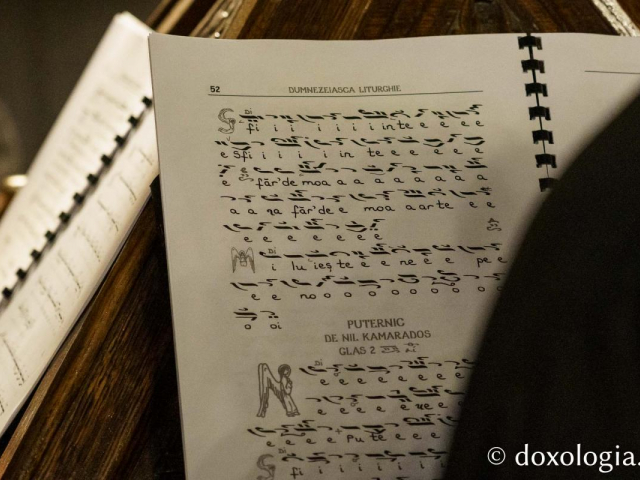 52 DUMNEZEIASCA LITURGHIE
S fi i i i i i i in te e e e e
e Sfi i i i i in te e e e e
e făr'de moa a a a a a a a
a a ṉa făr'de e moa a ar te e e
e e e e e e e
M i lu ieș te e e ne e e pe e
e e no o o o o o o o
o oi
PUTERNIC
DE NIL KAMARADOS
GLAS 2
N e e e e e e e e
e e e e
e e e e pu te e e e
S fi i i i i
© doxologia.